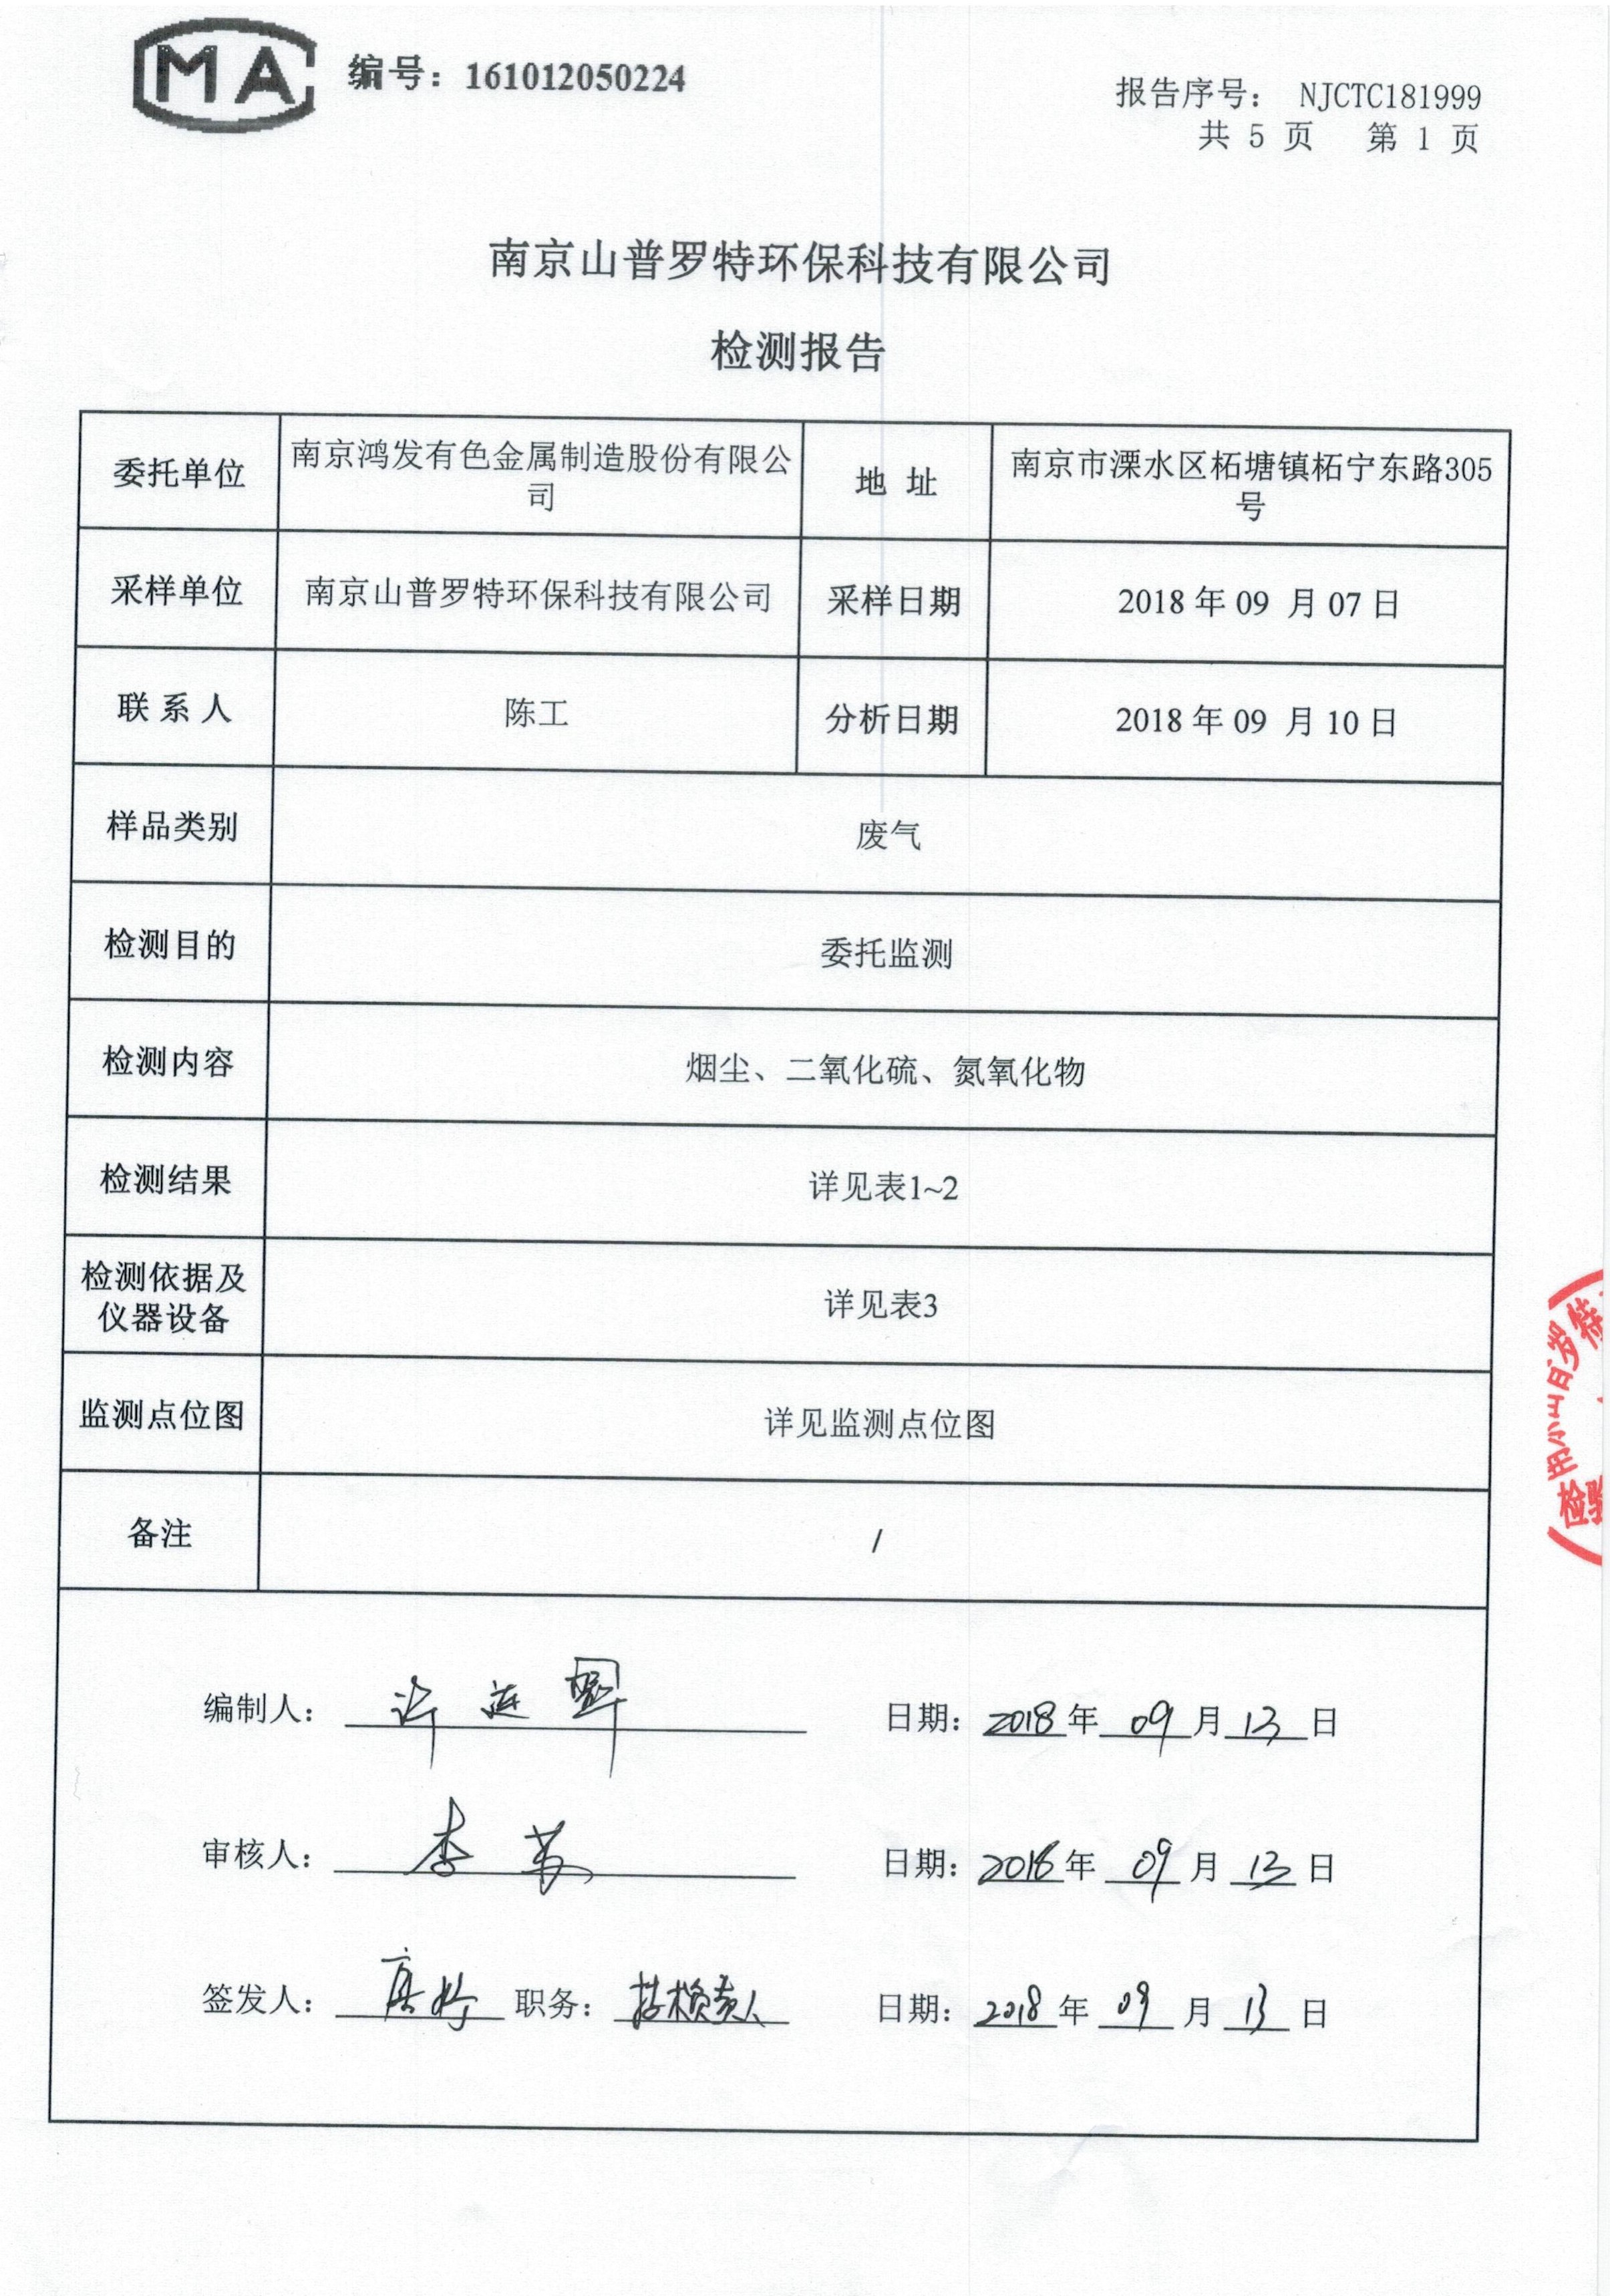 MA 编号：161012050224
报告序号： NJCTC181999
共 5 页 第 1 页
南京山普罗特环保科技有限公司
检测报告
委托单位 南京鸿发有色金属制造股份有限公司 地 址 南京市溧水区柘塘镇柘宁东路305号
采样单位 南京山普罗特环保科技有限公司 采样日期 2018 年 09 月 07 日
联 系 人 陈工 分析日期 2018 年 09 月 10 日
样品类别 废气
检测目的 委托监测
检测内容 烟尘、二氧化硫、氮氧化物
检测结果 详见表1~2
检测依据及仪器设备 详见表3
监测点位图 详见监测点位图
备注 /
编制人： 日期：2018 年 09 月 13 日
审核人： 李 日期：2018 年 09 月 13 日
签发人： 唐 职务： 技术负责人 日期：2018 年 09 月 13 日
山普罗特
检验